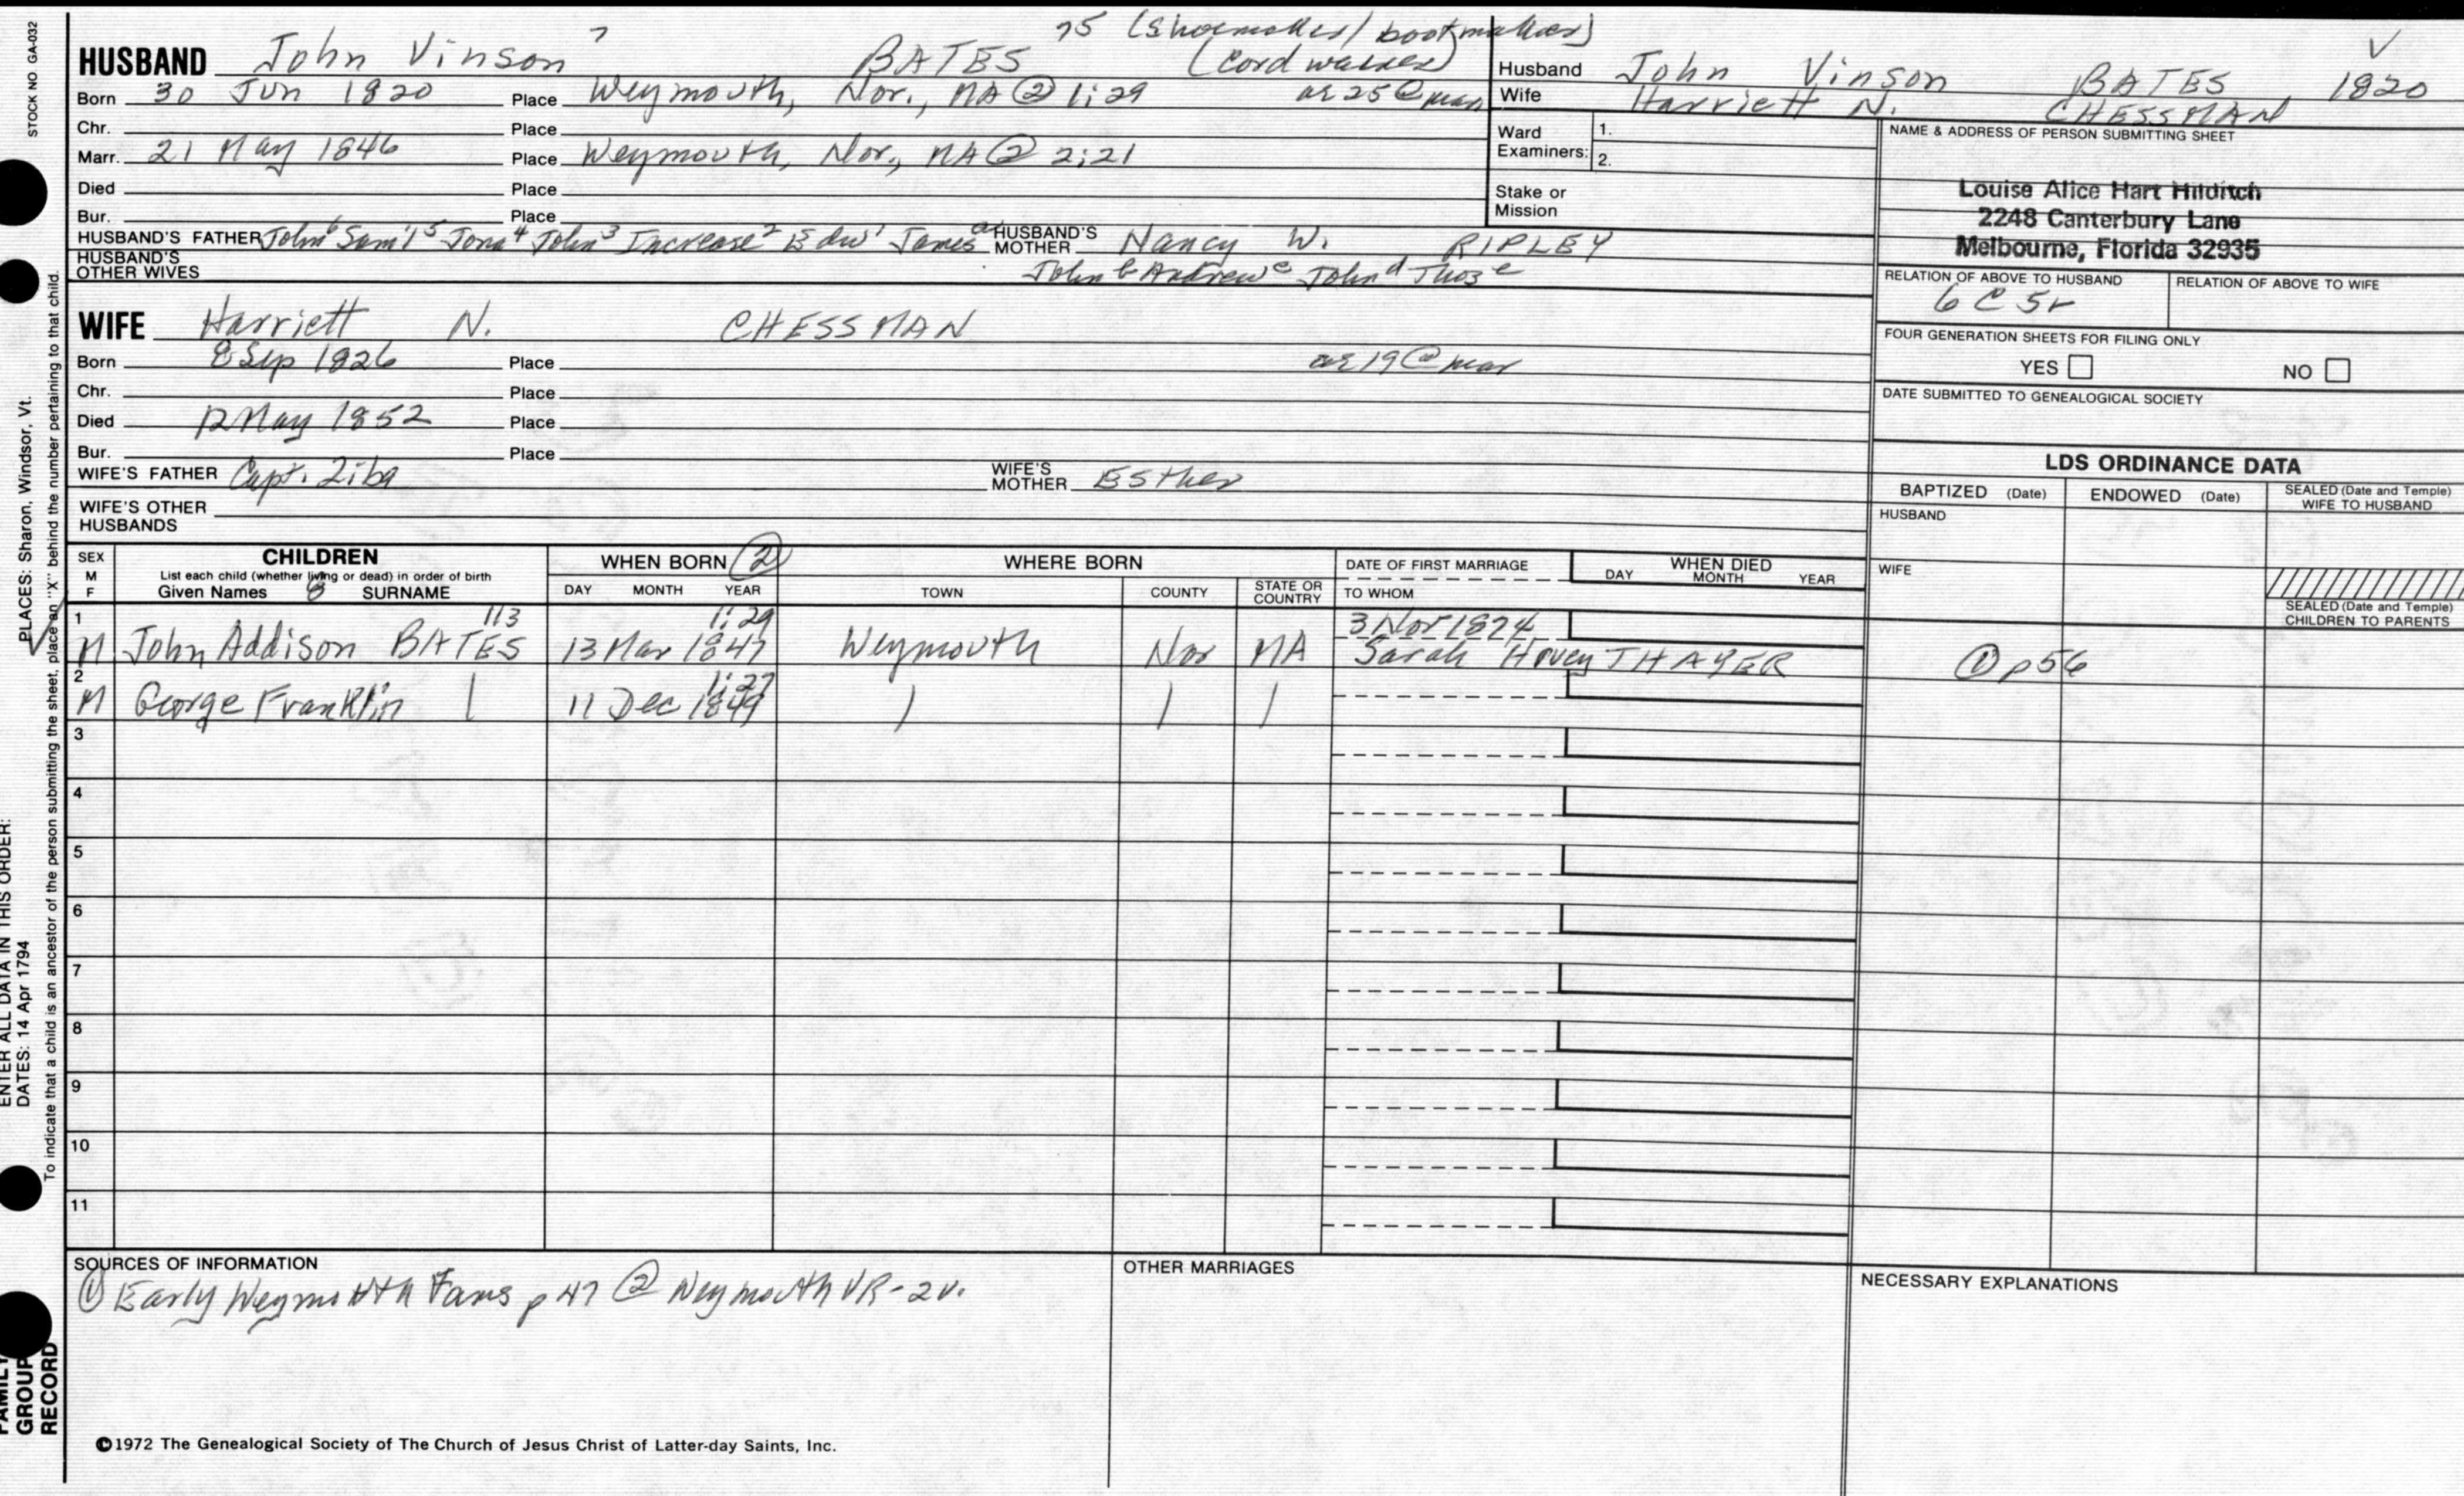 STOCK NO GA-032
75 (Shoemaker/bootmaker)
HUSBAND John Vinson 7 BATES (Cordwainer)
Born 30 Jun 1820 Place Weymouth, Nor., MA @ 1:29 ae 25 @ mar
Chr. Place
Marr. 21 May 1846 Place Weymouth, Nor., MA @ 2:21
Died Place
Bur. Place
HUSBAND'S FATHER John6 Sam'l5 Jona4 John3 Increase2 Edw1 Jamesa HUSBAND'S MOTHER Nancy W. RIPLEY
HUSBAND'S OTHER WIVES John b Andrew c John d Thos e
Husband John Vinson BATES 1820
Wife Harriett N. CHESSMAN
Ward Examiners: 1.
2.
Stake or Mission
NAME & ADDRESS OF PERSON SUBMITTING SHEET
Louise Alice Hart Hilditch
2248 Canterbury Lane
Melbourne, Florida 32935
RELATION OF ABOVE TO HUSBAND RELATION OF ABOVE TO WIFE
6 C 5r
FOUR GENERATION SHEETS FOR FILING ONLY
YES NO
DATE SUBMITTED TO GENEALOGICAL SOCIETY
WIFE Harriett N. CHESSMAN
Born 8 Sep 1826 Place ae 19 @ mar
Chr. Place
Died 12 May 1852 Place
Bur. Place
WIFE'S FATHER Capt. Ziba WIFE'S MOTHER Esther
WIFE'S OTHER HUSBANDS
LDS ORDINANCE DATA
BAPTIZED (Date) ENDOWED (Date) SEALED (Date and Temple) WIFE TO HUSBAND
HUSBAND
WIFE
SEALED (Date and Temple) CHILDREN TO PARENTS
SEX M F
CHILDREN
List each child (whether living or dead) in order of birth
Given Names 8 SURNAME
WHEN BORN 2
DAY MONTH YEAR
WHERE BORN
TOWN COUNTY STATE OR COUNTRY
DATE OF FIRST MARRIAGE
TO WHOM
WHEN DIED
DAY MONTH YEAR
113 1:29 3 Nov 1874
1 M John Addison BATES 13 Mar 1847 Weymouth Nor MA Sarah Hovey THAYER 1 p56
1:27
2 M George Franklin | 11 Dec 1849 | | |
3
4
5
6
7
8
9
10
11
SOURCES OF INFORMATION
1 Early Weymouth Fams p 47 2 Weymouth VR-2v.
OTHER MARRIAGES
NECESSARY EXPLANATIONS
©1972 The Genealogical Society of The Church of Jesus Christ of Latter-day Saints, Inc.
ENTER ALL DATA IN THIS ORDER:
DATES: 14 Apr 1794 PLACES: Sharon, Windsor, Vt.
To indicate that a child is an ancestor of the person submitting the sheet, place an "X" behind the number pertaining to that child.
FAMILY
GROUP
RECORD